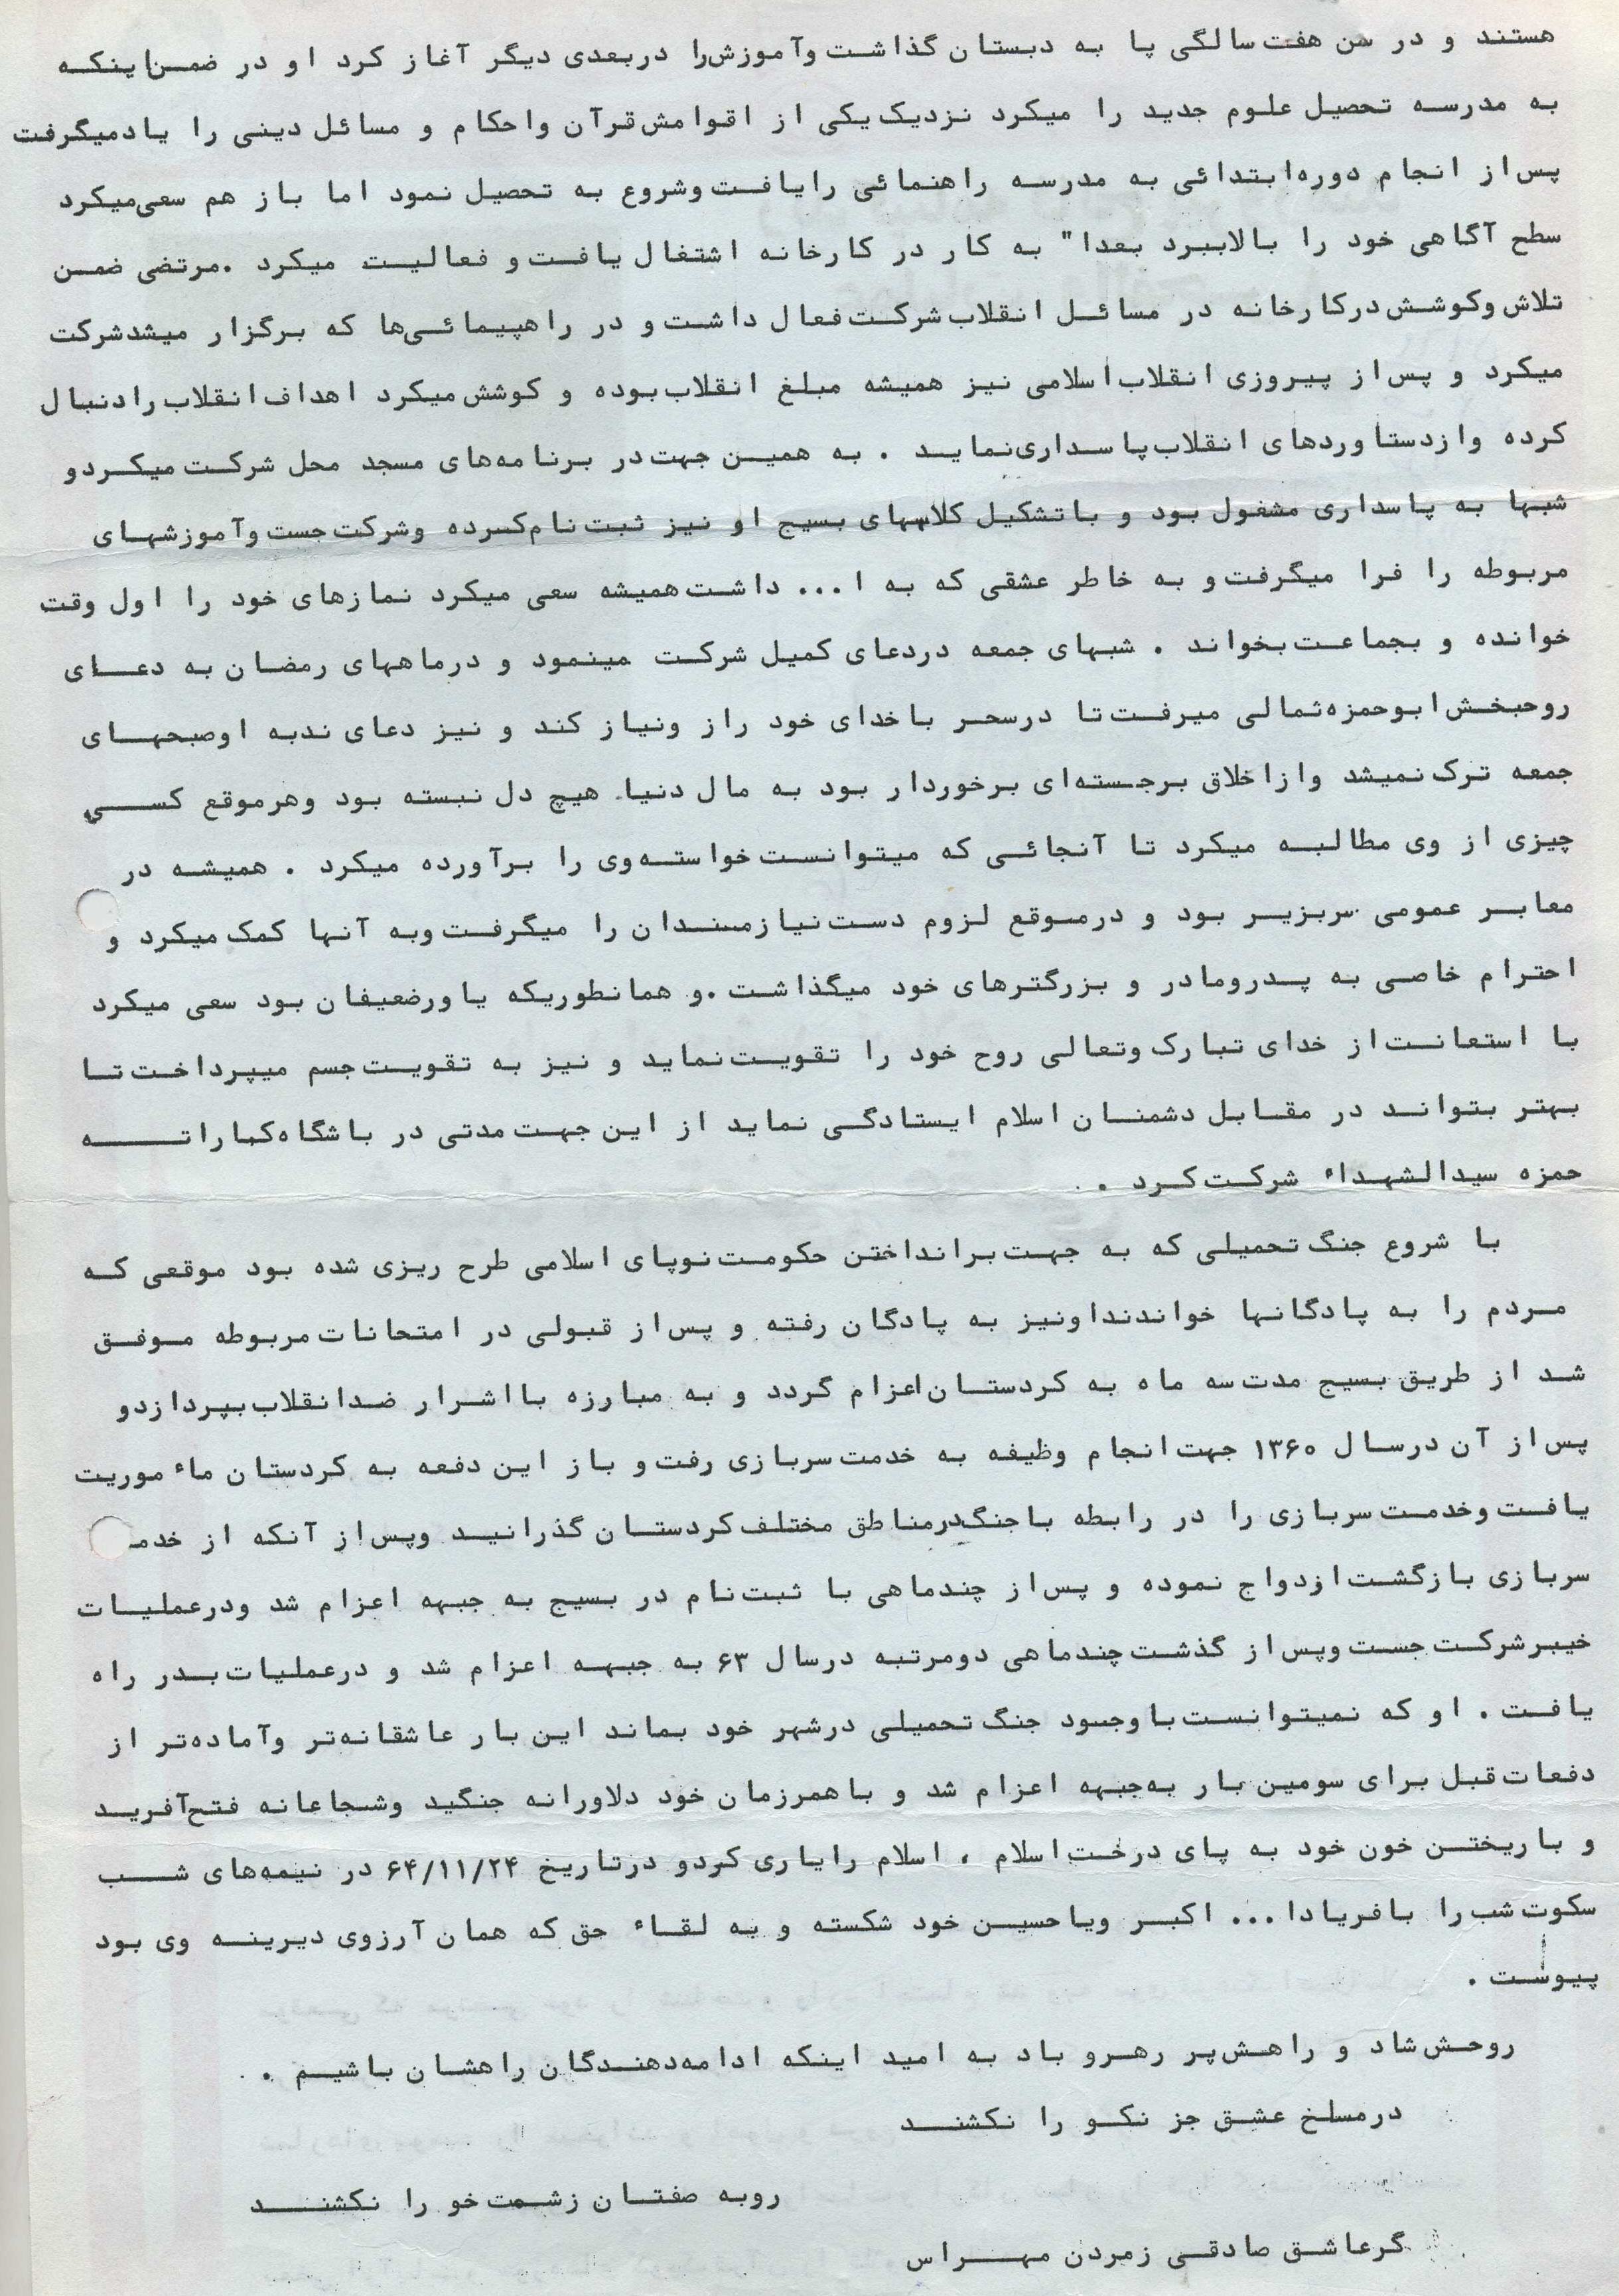 هستند و در سن هفت سالگی پا به دبستان گذاشت وآموزش را دربعدی دیگر آغاز کرد او در ضمن اینکه
به مدرسه تحصیل علوم جدید را میکرد نزدیک یکی از اقوامش قرآن واحکام و مسائل دینی را یادمیگرفت
پس از انجام دوره ابتدائی به مدرسه راهنمائی رایافت وشروع به تحصیل نمود اما باز هم سعی میکرد
سطح آگاهی خود را بالاببرد بعدا" به کار در کارخانه اشتغال یافت و فعالیت میکرد .مرتضی ضمن
تلاش وکوشش درکارخانه در مسائل انقلاب شرکت فعال داشت و در راهپیمائی‌ها که برگزار میشدشرکت
میکرد و پس از پیروزی انقلاب اسلامی نیز همیشه مبلغ انقلاب بوده و کوشش میکرد اهداف انقلاب رادنبال
کرده وازدستآوردهای انقلاب پاسداری نماید . به همین جهت در برنامه‌های مسجد محل شرکت میکردو
شبها به پاسداری مشغول بود و باتشکیل کلاسهای بسیج او نیز ثبت نام کرده وشرکت جست وآموزشهای
مربوطه را فرا میگرفت و به خاطر عشقی که به ا... داشت همیشه سعی میکرد نمازهای خود را اول وقت
خوانده و بجماعت بخواند . شبهای جمعه دردعای کمیل شرکت مینمود و درماههای رمضان به دعای
روحبخش ابوحمزه ثمالی میرفت تا درسحر باخدای خود راز ونیاز کند و نیز دعای ندبه اوصبحهای
جمعه ترک نمیشد وازاخلاق برجسته‌ای برخوردار بود به مال دنیا هیچ دل نبسته بود وهرموقع کسی
چیزی از وی مطالبه میکرد تا آنجائی که میتوانست خواسته وی را برآورده میکرد . همیشه در
معابر عمومی سربزیر بود و درموقع لزوم دست نیازمندان را میگرفت وبه آنها کمک میکرد و
احترام خاصی به پدرومادر و بزرگترهای خود میگذاشت .و همانطوریکه یاورضعیفان بود سعی میکرد
با استعانت از خدای تبارک وتعالی روح خود را تقویت نماید و نیز به تقویت جسم میپرداخت تا
بهتر بتواند در مقابل دشمنان اسلام ایستادگی نماید از این جهت مدتی در باشگاه کماراته
حمزه سیدالشهداء شرکت کرد .
با شروع جنگ تحمیلی که به جهت برانداختن حکومت نوپای اسلامی طرح ریزی شده بود موقعی که
مردم را به پادگانها خواندنداونیز به پادگان رفته و پس از قبولی در امتحانات مربوطه موفق
شد از طریق بسیج مدت سه ماه به کردستان اعزام گردد و به مبارزه بااشرار ضدانقلاب بپردازدو
پس از آن درسال ۱۳۶۰ جهت انجام وظیفه به خدمت سربازی رفت و باز این دفعه به کردستان ماءموریت
یافت وخدمت سربازی را در رابطه باجنگ درمناطق مختلف کردستان گذرانید وپس از آنکه از خدمـ
سربازی بازگشت ازدواج نموده و پس از چندماهی با ثبت نام در بسیج به جبهه اعزام شد ودرعملیات
خیبرشرکت جست وپس از گذشت چندماهی دومرتبه درسال ۶۳ به جبهه اعزام شد و درعملیات بدر راه
یافت . او که نمیتوانست باوجود جنگ تحمیلی درشهر خود بماند این بار عاشقانه‌تر وآماده‌تر از
دفعات قبل برای سومین بار به جبهه اعزام شد و باهمرزمان خود دلاورانه جنگید وشجاعانه فتح آفرید
و باریختن خون خود به پای درخت اسلام ، اسلام رایاری کردو درتاریخ ۶۴/۱۱/۲۴ در نیمه‌های شب
سکوت شب را بافریادا... اکبر ویاحسین خود شکسته و به لقاء حق که همان آرزوی دیرینه وی بود
پیوست .
روحش شاد و راهش پر رهرو باد به امید اینکه ادامه‌دهندگان راهشان باشیم .
درمسلخ عشق جز نکو را نکشند
روبه صفتان زشت خو را نکشند
گرعاشق صادقی زمردن مهراس